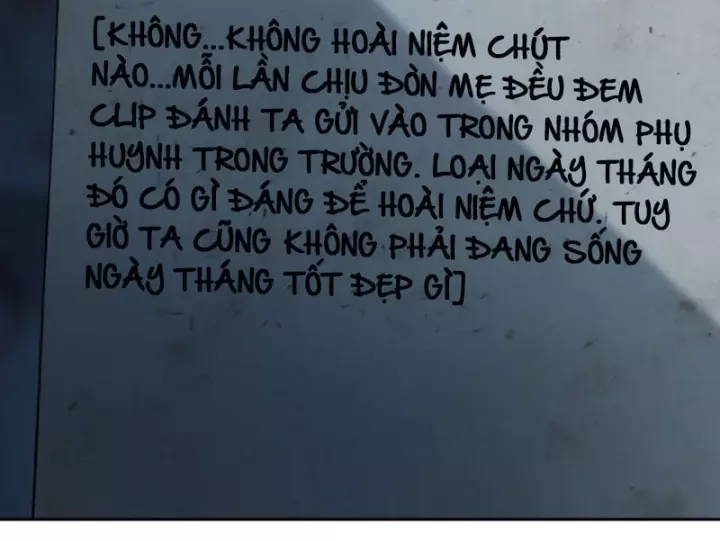 [KHÔNG...KHÔNG HOÀI NIỆM CHÚT
NÀO...MỖI LẦN CHỊU ĐÒN MẸ ĐỀU ĐEM
CLIP ĐÁNH TA GỬI VÀO TRONG NHÓM PHỤ
HUYNH TRONG TRƯỜNG. LOẠI NGÀY THÁNG
ĐÓ CÓ GÌ ĐÁNG ĐỂ HOÀI NIỆM CHỨ. TUY
GIỜ TA CŨNG KHÔNG PHẢI ĐANG SỐNG
NGÀY THÁNG TỐT ĐẸP GÌ]